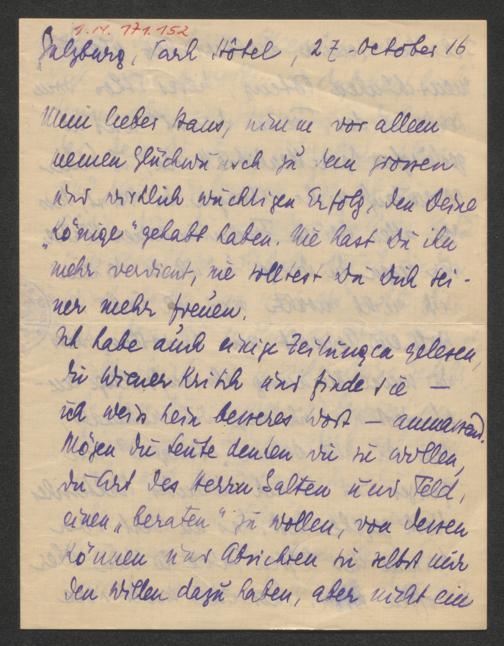 I.N. 171.152
Salzburg, Park Hôtel, 27. October 16
Mein lieber Hans, nimm vor allem
meinen Glückwunsch zu dem grossen
und wirklich wuchtigen Erfolg, den Deine
„Könige" gehabt haben. Nie hast Du ihn
mehr verdient, nie solltest Du Dich sei-
ner mehr freuen.
Ich habe auch einige Zeitungen gelesen,
die Wiener Kritik und finde sie —
ich weiss kein besseres Wort — anmassend.
Mögen die Leute denken wie sie wollen,
die Art des Herrn Salten und Feld,
einen „beraten" zu wollen, von dessen
Können und Absichten sie selbst nur
den Willen dazu haben, aber nicht ein